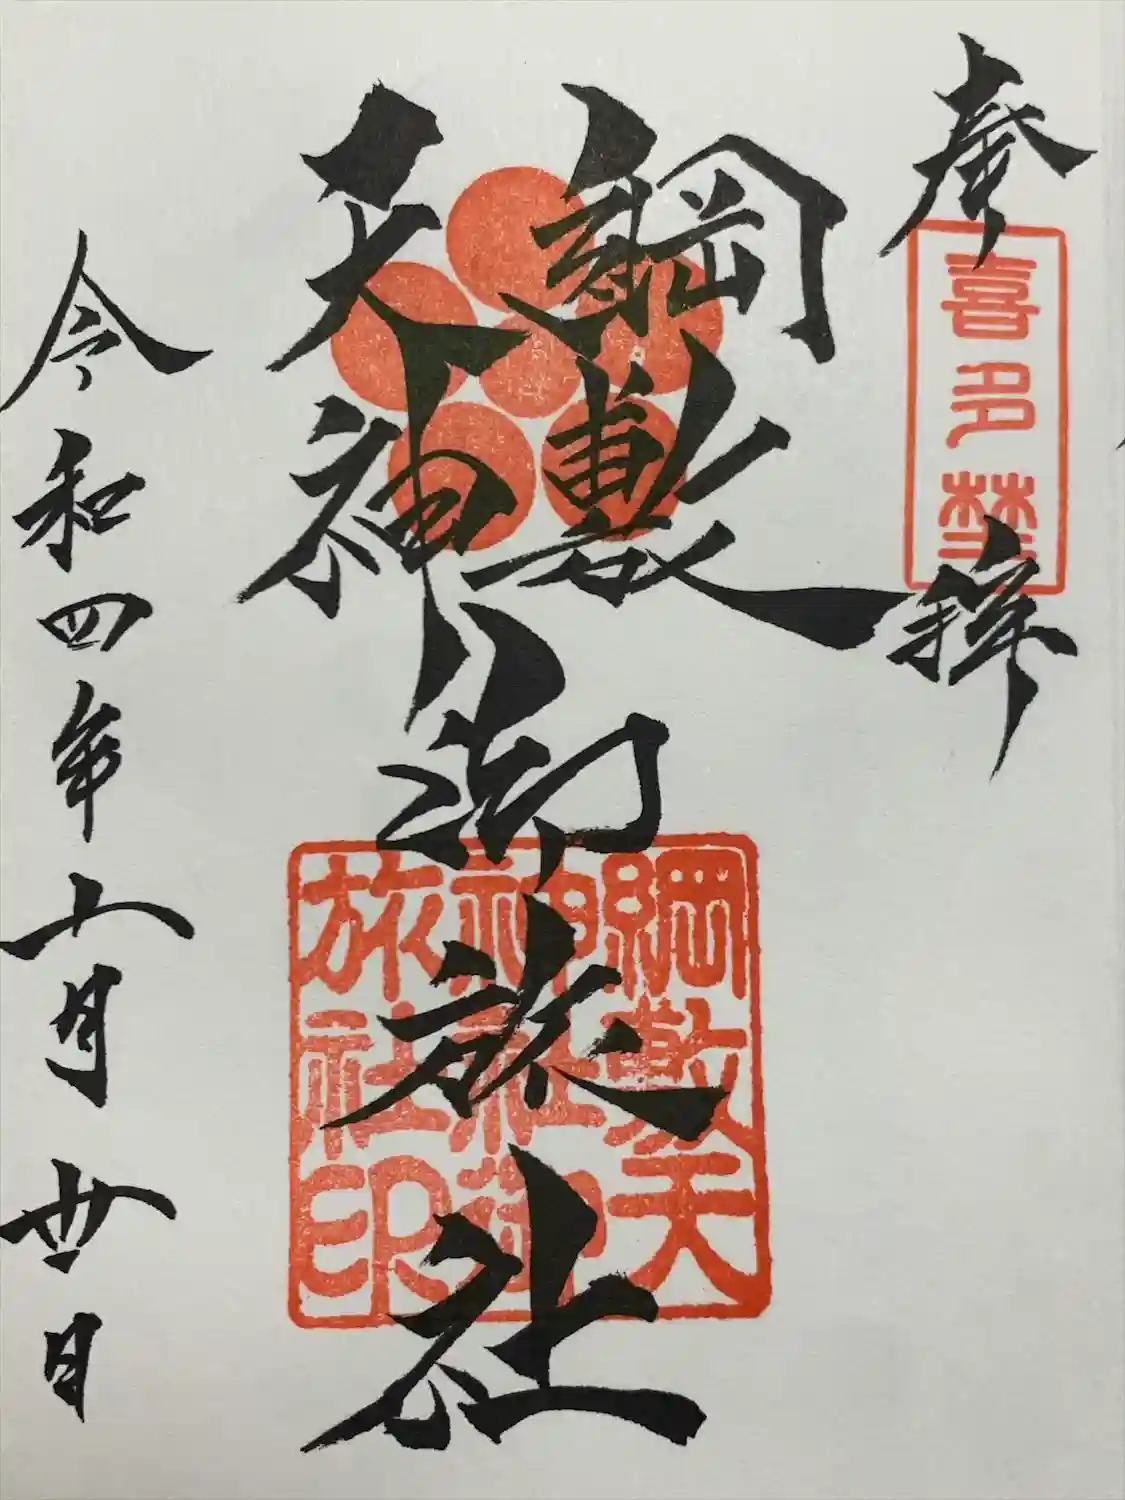 奉拝
喜多埜
綱敷
天神
御旅社
綱敷天
神社御
旅社印
令和四年十月廿日